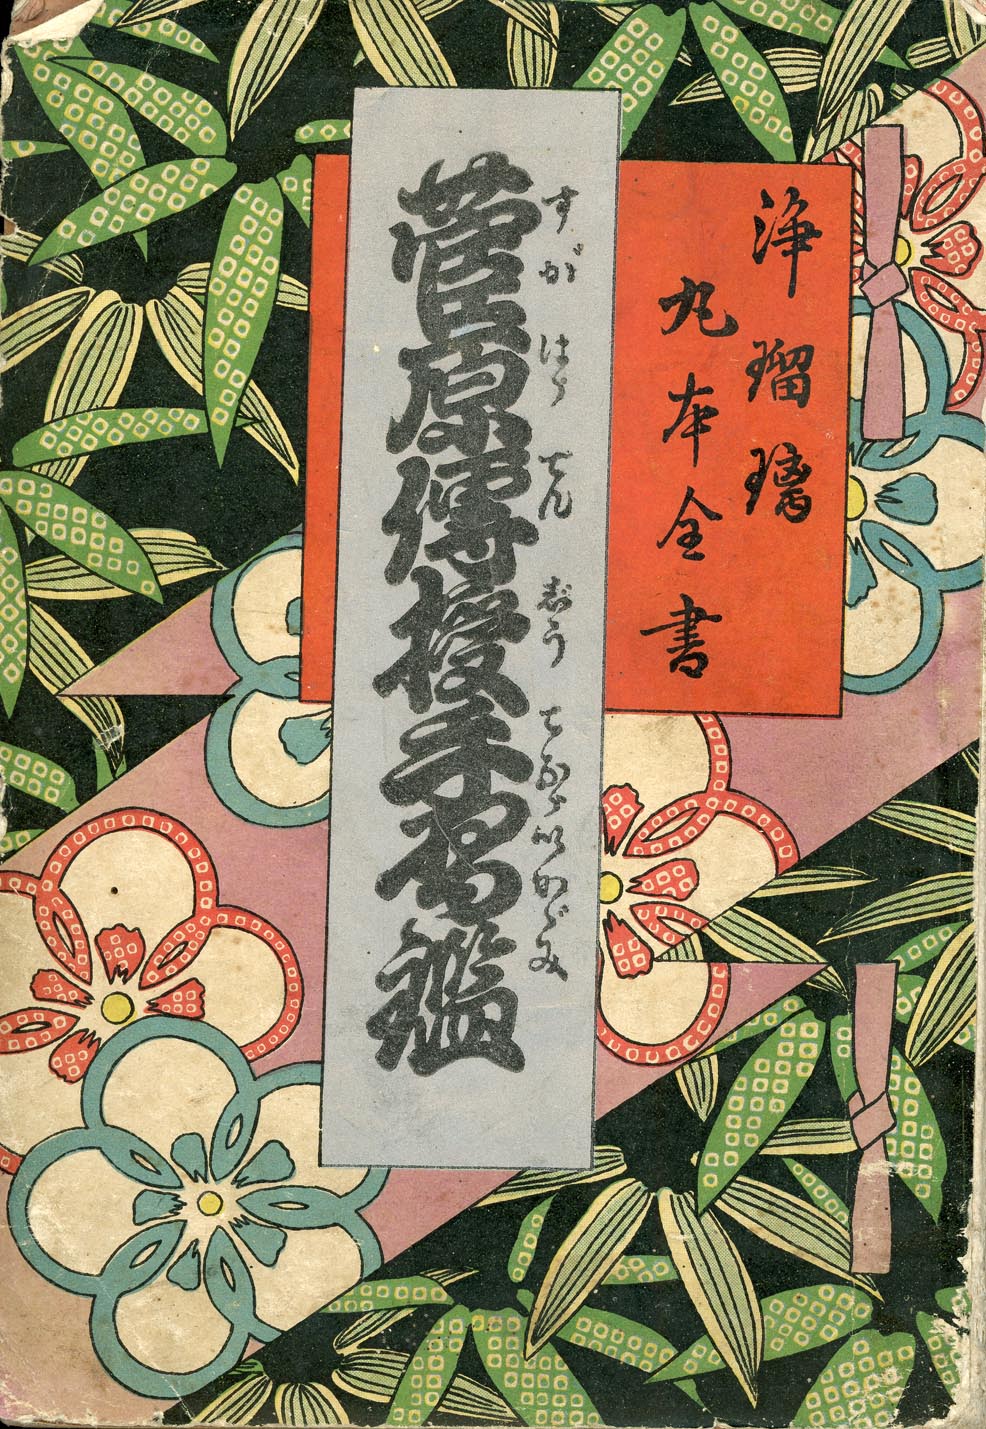 浄瑠璃
丸本全書
すがはらでんじうてならいかゞみ
菅原傳授手習鑑